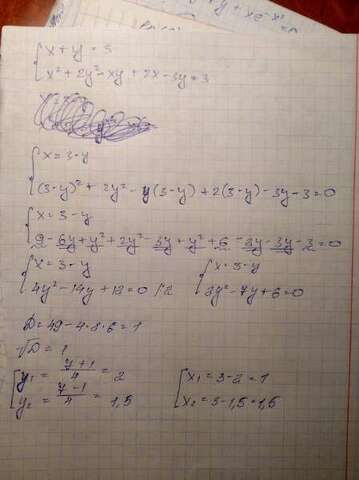 {x+y=3
{x²+2y²-xy+2x-3y=3
{x=3-y
{(3-y)²+2y²-y(3-y)+2(3-y)-3y-3=0
{x=3-y
{9-6y+y²+2y²-3y+y²+6-2y-3y-3=0
{x=3-y {x=3-y
{4y²-14y+12=0 /:2 {2y²-7y+6=0
D=49-4·2·6=1
√D=1
[y₁=(7+1)/4=2 [x₁=3-2=1
[y₂=(7-1)/4=1,5 [x₂=3-1,5=1,5